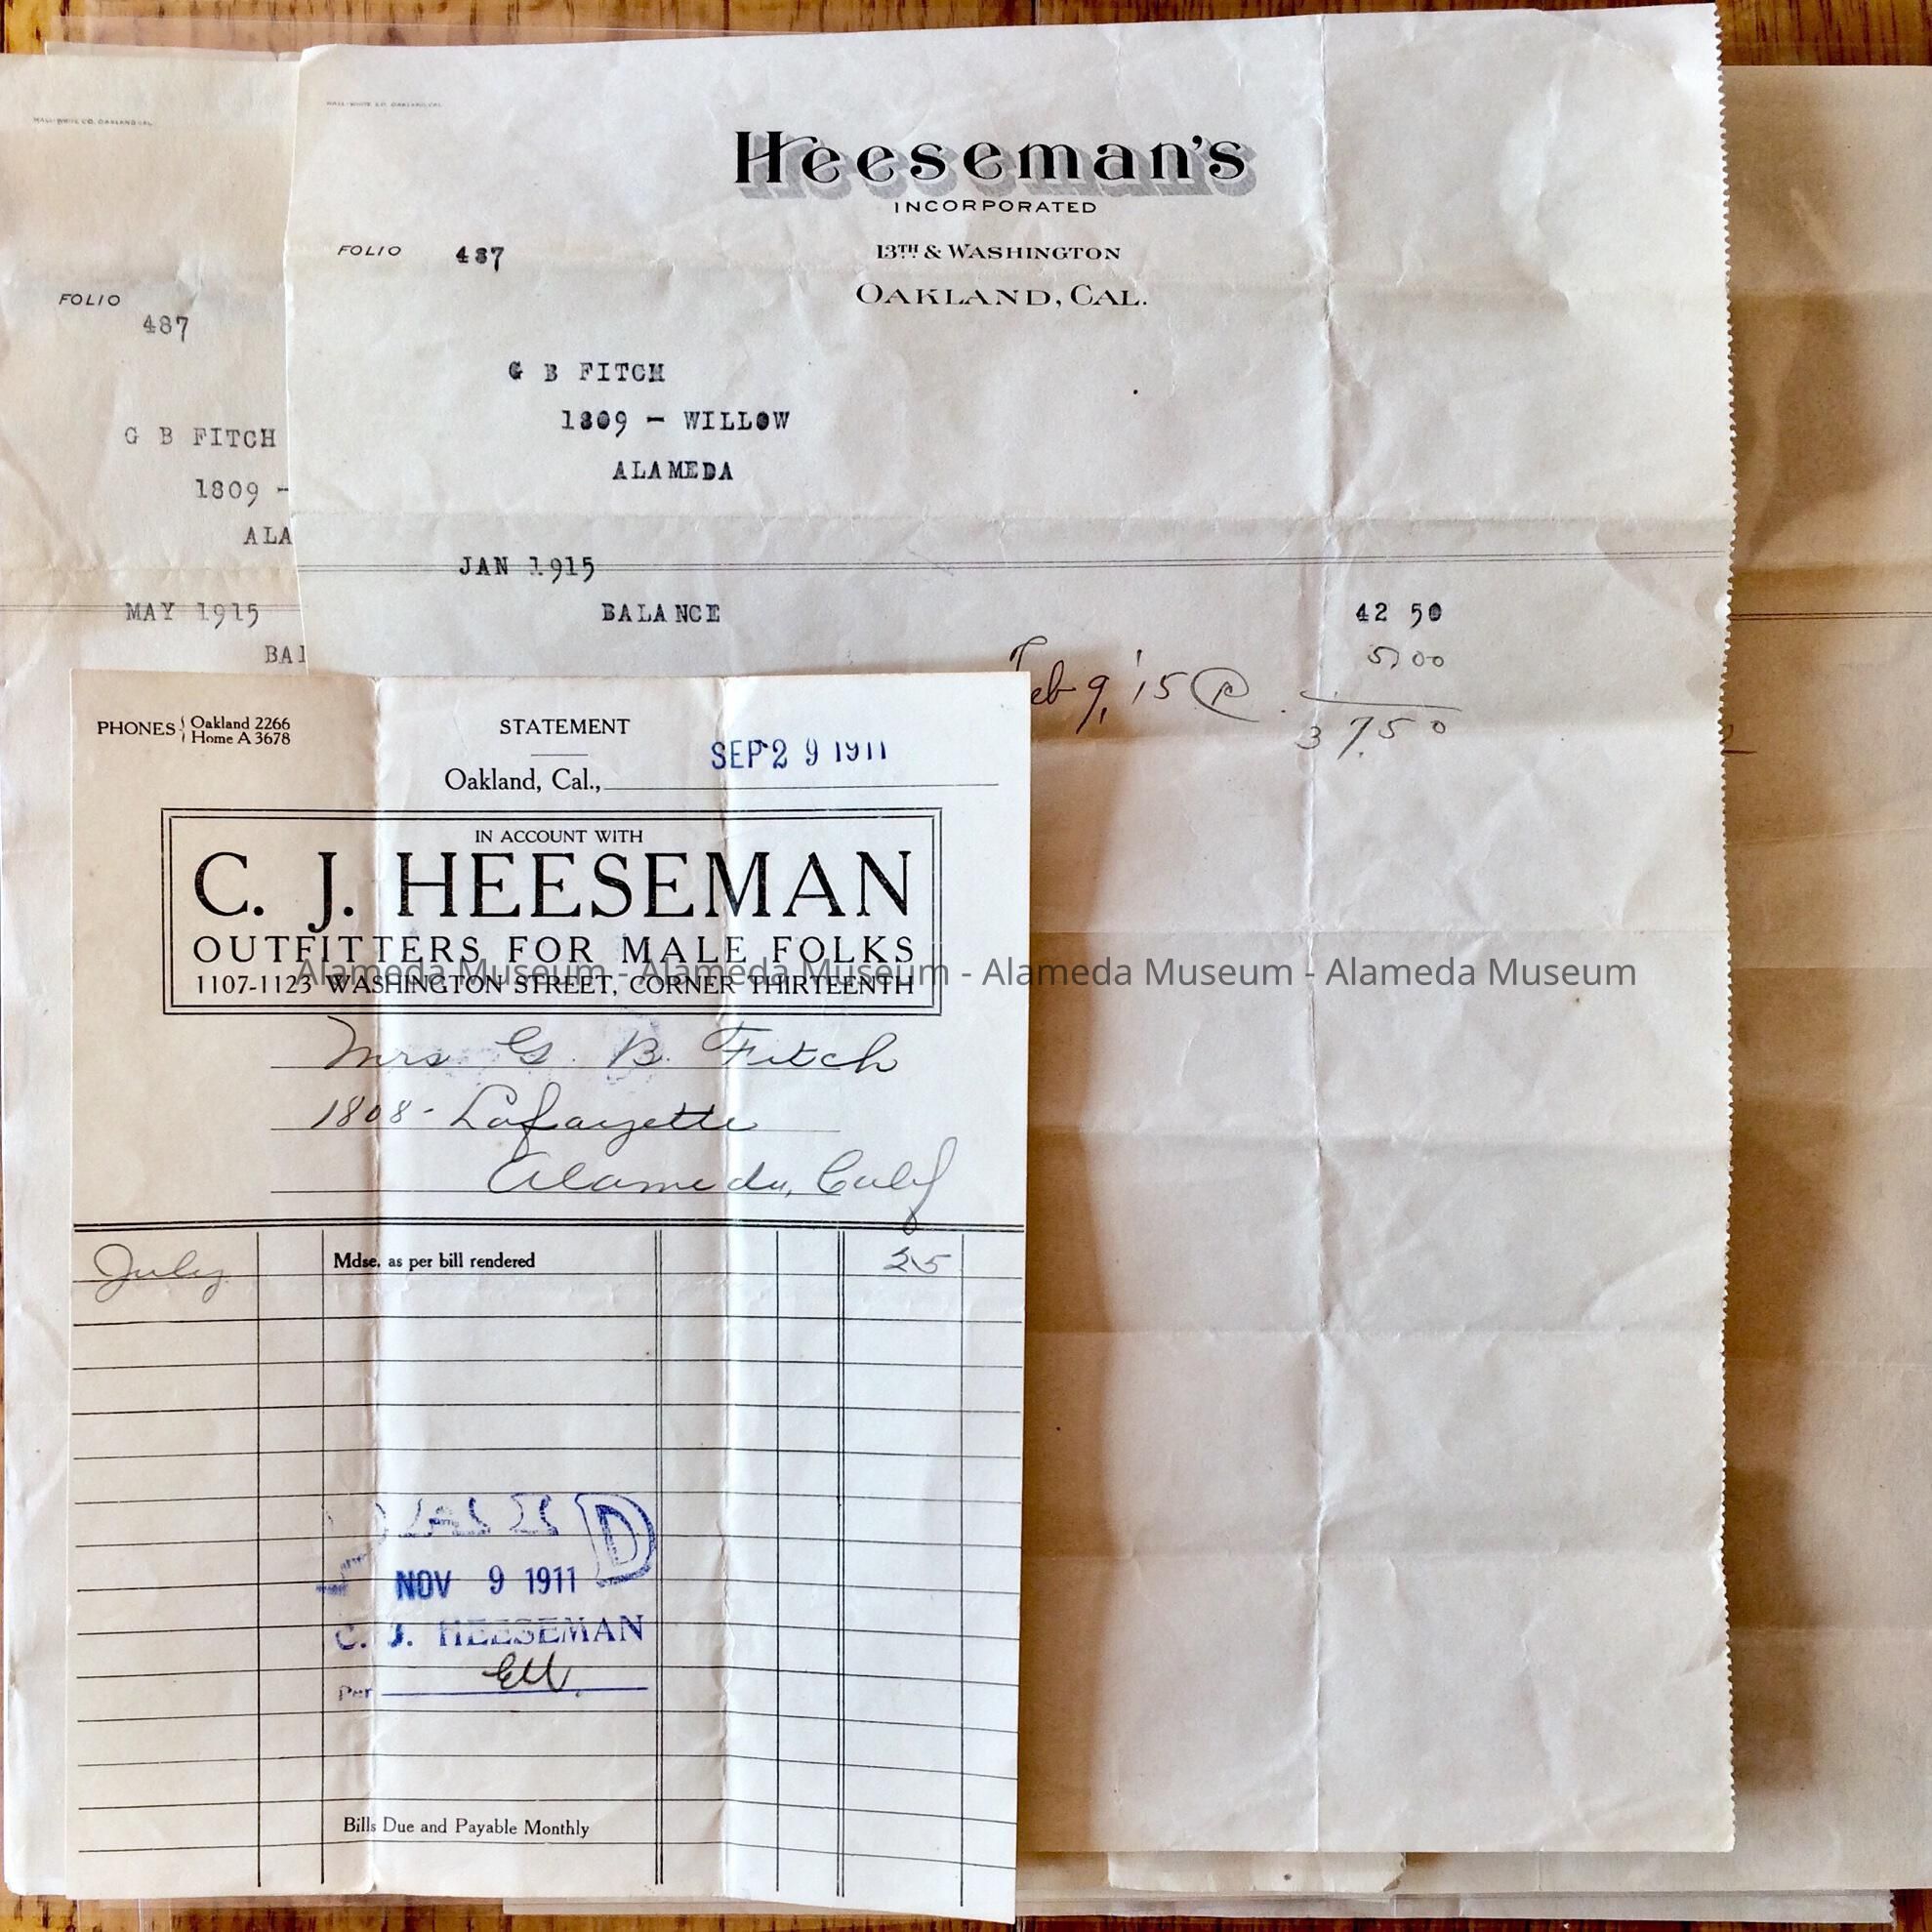 HALL-WHITE CO. OAKLAND, CAL.
FOLIO
487
G B FITCH
1809 -
ALA
MAY 1915
BAL
HALL-WHITE CO. OAKLAND, CAL.
Heeseman's
INCORPORATED
FOLIO 487
13TH & WASHINGTON
OAKLAND, CAL.
G B FITCH
1809 - WILLOW
ALAMEDA
JAN 1915
BALANCE 42 50
5,00
Feb 9, '15
37.50
PHONES Oakland 2266
Home A 3678
STATEMENT
SEP 29 1911
Oakland, Cal.,
IN ACCOUNT WITH
C. J. HEESEMAN
OUTFITTERS FOR MALE FOLKS
1107-1123 WASHINGTON STREET, CORNER THIRTEENTH
Alameda Museum - Alameda Museum - Alameda Museum - Alameda Museum
Mrs G. B. Fitch
1808 - Lafayette
Alameda, Calif
July Mdse. as per bill rendered 25
PAID
NOV 9 1911
C. J. HEESEMAN
Per
Bills Due and Payable Monthly